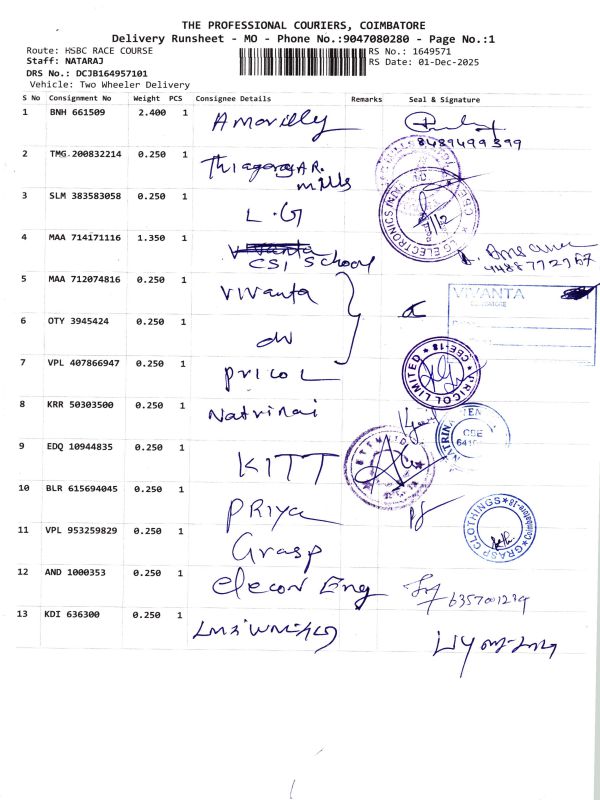 THE PROFESSIONAL COURIERS, COIMBATORE
Delivery Runsheet - MO - Phone No.:9047080280 - Page No.:1
Route: HSBC RACE COURSE
RS No.: 1649571
Staff: NATARAJ
RS Date: 01-Dec-2025
DRS No.: DCJB164957101
Vehicle: Two Wheeler Delivery
S No Consignment No Weight PCS Consignee Details Remarks Seal & Signature
1 BNH 661509 2.400 1
8489499399
2 TMG 200832214 0.250 1 Thiagaraja R. mills
3 SLM 383583058 0.250 1 L.G
4 MAA 714171116 1.350 1 CSI School
5 MAA 712074816 0.250 1 Vivanta
VIVANTA
6 OTY 3945424 0.250 1 do
7 VPL 407866947 0.250 1 Pricol
PRICOL LIMITED CBE-18
8 KRR 50303500 0.250 1 Natrinai
9 EDQ 10944835 0.250 1 KITT
10 BLR 615694045 0.250 1 PRiya
11 VPL 953259829 0.250 1 Grasp
GRASP CLOTHINGS Coimbatore-18
12 AND 1000353 0.250 1 elecon Eng
13 KDI 636300 0.250 1